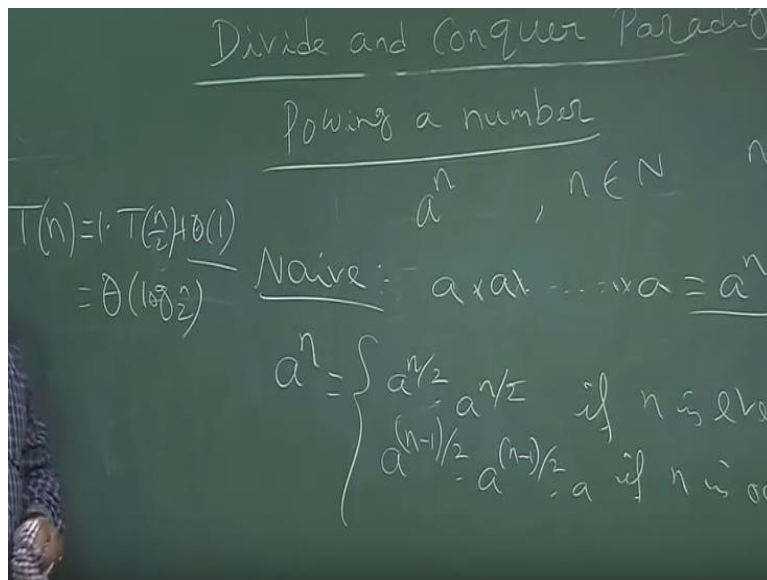 Divide and Conquer Paradig
Powing a number
a^n , n ∈ N n
T(n)=1· T(n/2)+θ(1)
= θ(log n/2)
Naive:- a x a x ..... x a = a^n
a^n = { a^n/2 · a^n/2 if n is eve
a^(n-1)/2 · a^(n-1)/2 · a if n is o